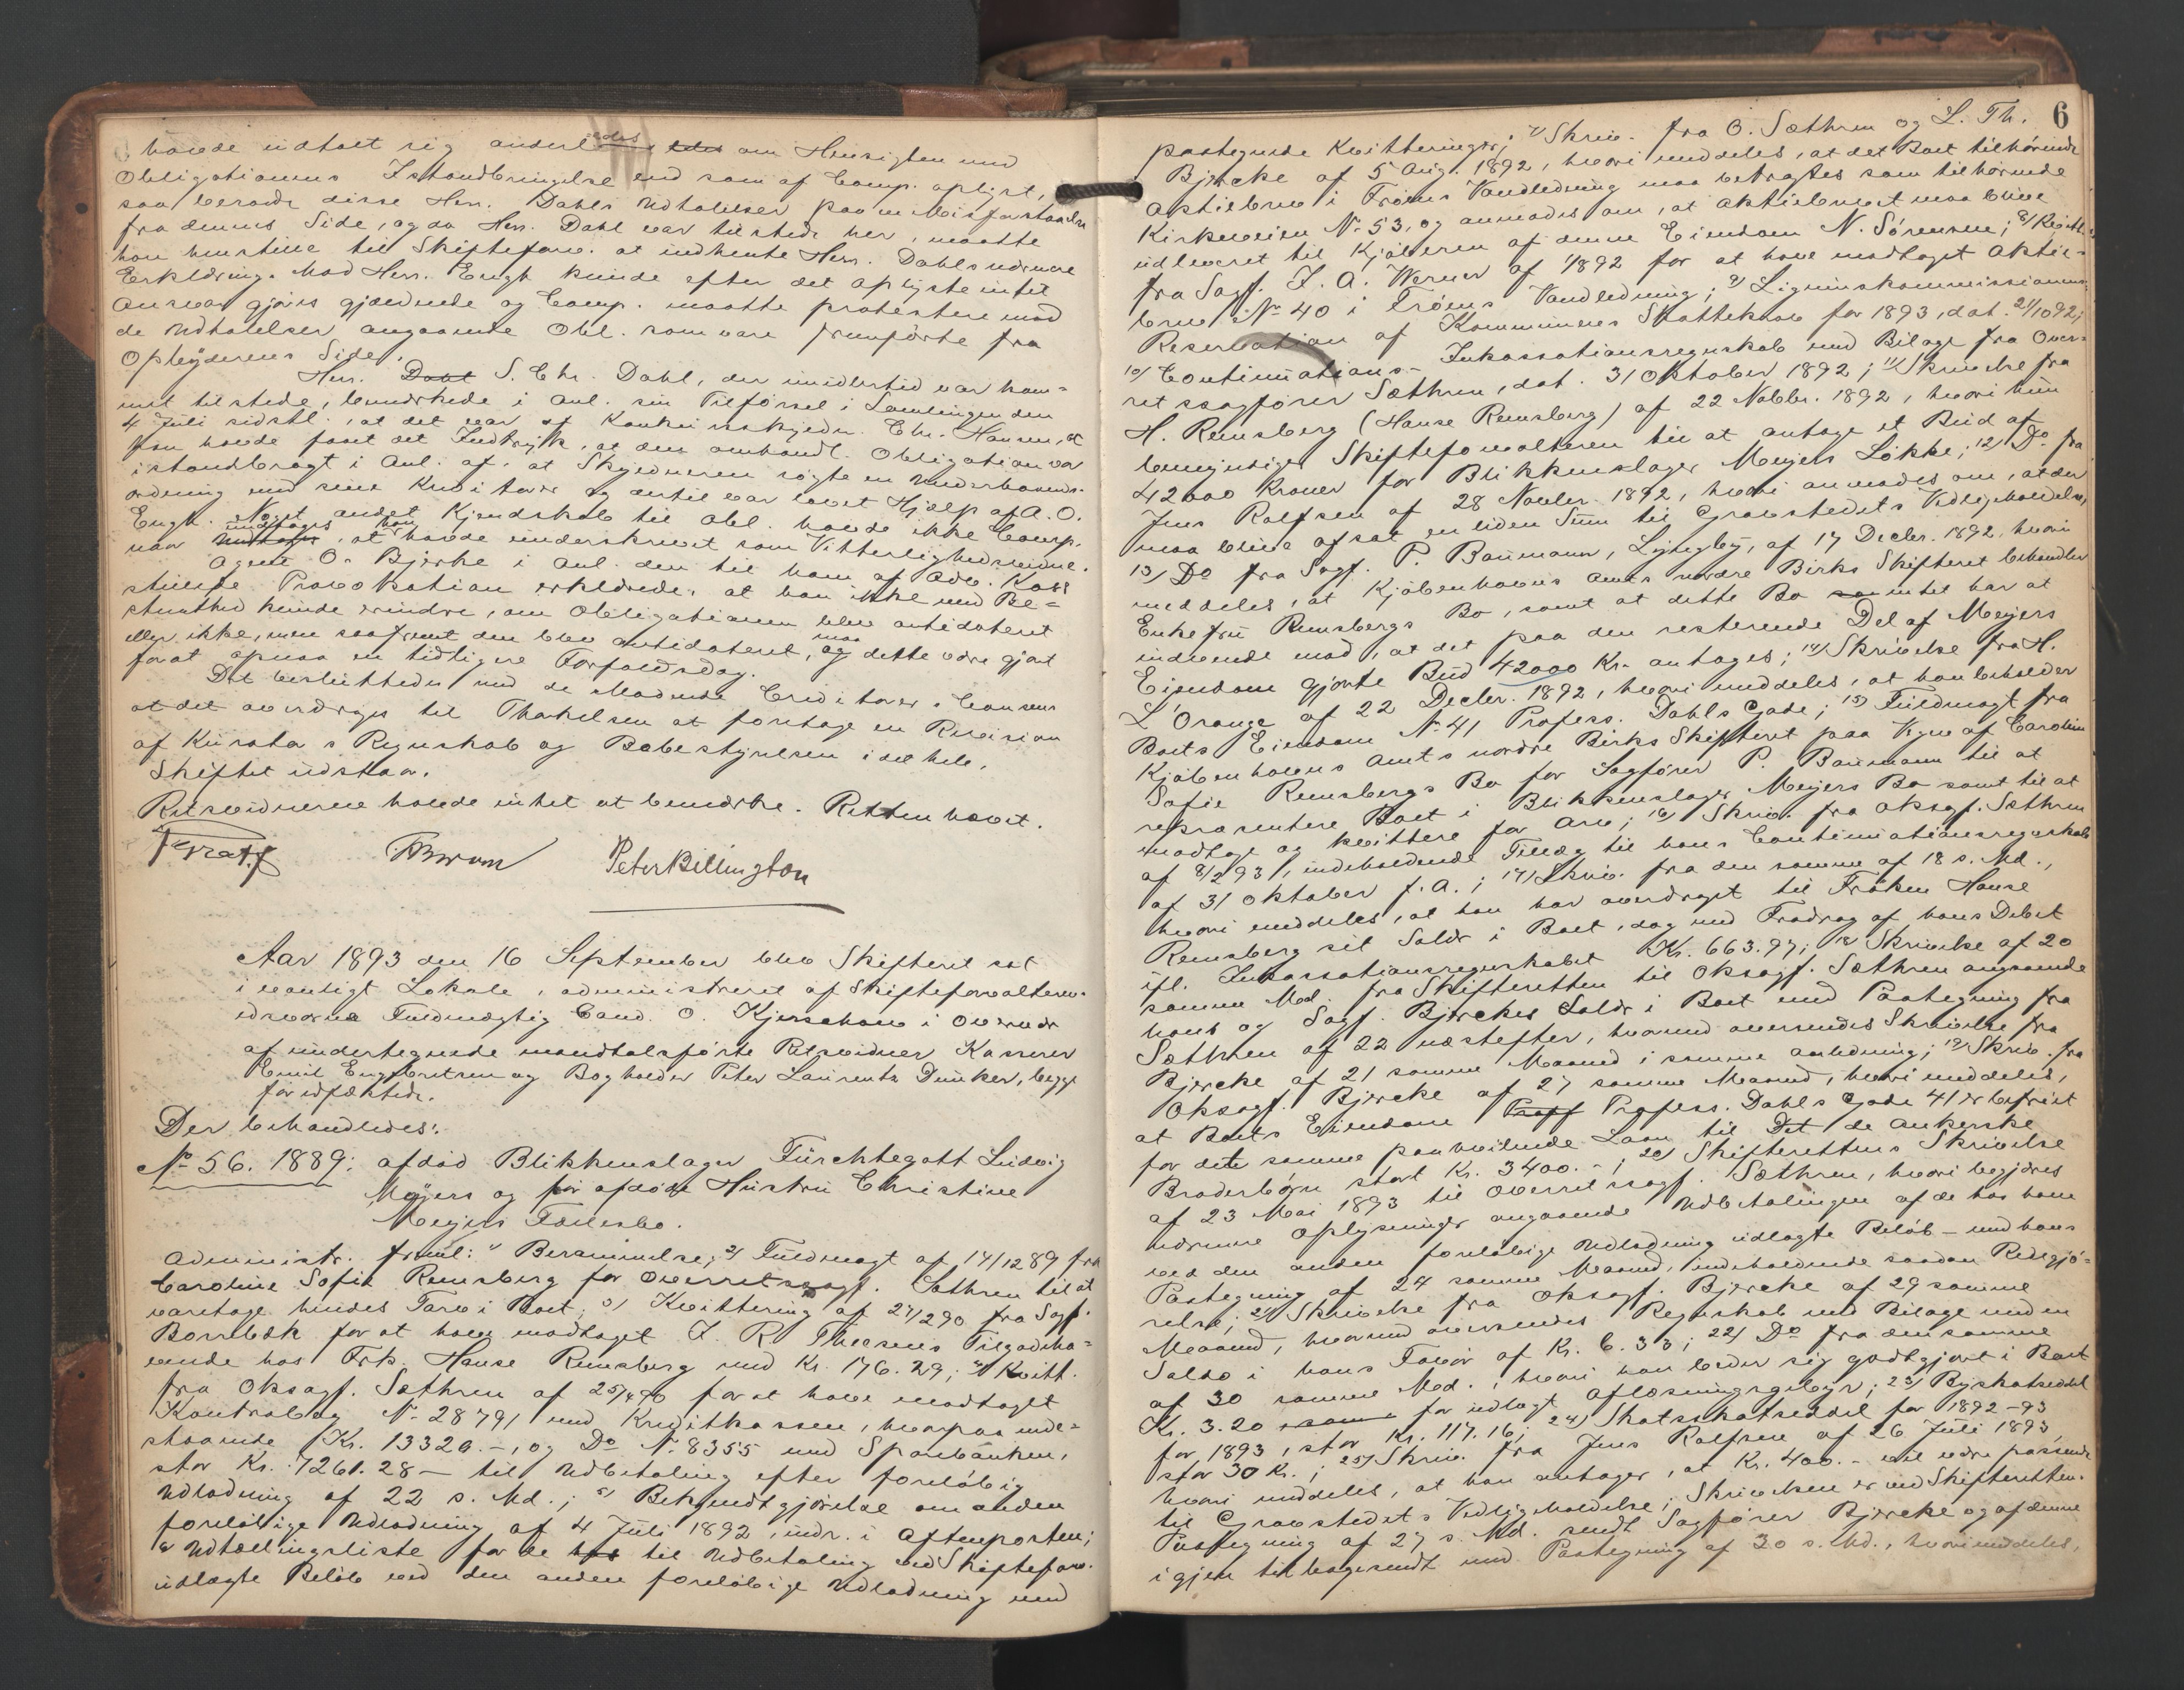 havde udtalt sig anderledes om Hensigten med
Obligationens Istandbringelse end som af Comp. oplyst,
saa beroede disse Herr. Dahls Udtalelser paa en Misforstaaelse
fra dennes Side, og da Herr. Dahl var tilstede her, maatte
han henstille til Skifteforv. at indhente Herr. Dahls nærmere
Erklæring. Mod Herr. Engh kunde efter det oplyste intet
Ansvar gjøres gjældende og Comp. maatte protestere mod
de Udtalelser angaaende Obl. som vare fremførte fra
Opbyderens Side.
Herr. Dahl S. Chr. Dahl, der imidlertid var kom-
met tilstede, bemærkede i Anl. sin Tilførsel i Samlingen den
4 Juli sidstl., at det var af Konkursskyldn. Chr. Hansen, at
han havde faaet det Indtryk, at den omhandl. Obligation var
istandbragt i Anl. af, at Skyldneren søgte en Underhaands-
ordning med sine Kreditorer og dertil var lovet Hjælp af A. O.
Engh. Noget andet Kjendskab til Obl. havde ikke Comp.
naar undtages, at han havde underskrevet som Vitterlighedsvidne.
Agent O. Bjerke i Anl. den til ham af Adv. Koss
stillede Provokation erklærede, at han ikke med Be-
stemthed kunde erindre, om Obligationen blev antidateret
eller ikke, men saafremt den blev antidateret, maa og dette være gjort
for at opnaa en tidligere Forfaldsdag.
Det besluttedes med de mødende Creditorers Consens
at det overdroges til Thorkelsen at foretage en Revision
af Kurators Regnskab og Bobestyrelsen i det hele.
Skiftet udstaar.
Retsvidnerne havde intet at bemærke. Retten hævet.
Peter Billington
Aar 1893 den 16 September blev Skifteret sat
i vanligt Lokale, administreret af Skifteforvalteren-
edsvorne Fuldmægtig Cand. O. Kjerschow i Overvær
af undertegnede mandtalsførte Retsvidner Kasserer
Emil Engebretsen og Bogholder Peter Laurentz Dunker, begge
før edfæstede.
Der behandledes:
No 56. 1889: afdød Blikkenslager Fürchtegott Ludvig
Meyers og før afdøde Hustru Christine
Meyers Fællesbo.
Administr. freml: 1) Berammelse; 2) Fuldmagt af 14/12 89 fra
Caroline Sofie Remsberg for Overretssagf. Sæthren til at
varetage hendes Tarv i Boet; 3) Kvittering af 27/2 90 fra Sagf.
Bombæk for at have modtaget J. R. Thesens Tilgodeha-
vende hos Frk. Hanse Remsberg med Kr. 176.29; 4) Kvitt.
fra Oksagf. Sæthren af 25/4 90 for at have modtaget
Kontrabog No 28791 med Kreditkassen, hvorpaa inde-
staaende Kr. 13320.-, og Do No 8355 med Sparebanken,
stor Kr. 7261.28 – til Udbetaling efter foreløbig
Udlodning af 22 s. Md.; 5) Bekjendtgjørelse om anden
foreløbige Udlodning af 4 Juli 1892, indr. i Aftenposten;
6) Udtællingsliste for de til Udbetaling ved Skifteforv.
udlagte Beløb ved den anden foreløbige Udlodning med
6
paategnede Kvitteringer; 7) Skriv. fra O. Sæthren og L. Th.
Bjercke af 5 Aug. 1892, hvori meddeles, at det Boet tilhørende
Aktiebrev i Frøens Vandledning maa betragtes som tilhørende
Kirkeveien No 53, og anmodes om, at Aktiebrevet maa blive
udleveret til Kjøberen af denne Eiendom N. Sørensen; 8) Kvitt.
fra Sagf. J. A. Werner af 1892 for at have modtaget Aktie-
brev No 40 i Frøens Vandledning; 9) Ligningskommissionens
Reservation af Kommunens Skattekrav for 1893, dat. 21/10 92;
10) Continuations- Inkassationsregnskab med Bilage fra Over-
retssagfører Sæthren, dat. 31 Oktober 1892; 11) Skrivelse fra
H. Remsberg (Hanse Remsberg) af 22 Novbr. 1892, hvori hun
bemyndiger Skifteforvalteren til at antage et Bud af
42000 Kroner for Blikkenslager Meyers Løkke; 12) Do fra
Jens Rolfsen af 28 Novbr. 1892, hvori anmodes om, at der
maa blive afsat en liden Sum til Gravstedets Vedligeholdelse;
13) Do fra Sagf. P. Baumann, Lyngby, af 17 Decbr. 1892, hvori
meddeles, at Kjøbenhavns Amts nordre Birks Skifteret behandler
Enkefru Remsbergs Bo, samt at dette Bo intet har at
indvende mod, at det paa den resterende Del af Meyers
Eiendom gjorte Bud 42000 Kr. antages; 14) Skrivelse fra H.
L'Orange af 22 Decbr. 1892, hvori meddeles, at han beholder
Boets Eiendom No 41 Profess. Dahls Gade; 15) Fuldmagt fra
Kjøbenhavns Amts nordre Birks Skifteret paa Vegne af Caroline
Sofie Remsbergs Bo for Sagfører P. Baumann til at
repræsentere Boet i Blikkenslager Meyers Bo samt til at
modtage og kvittere for Arv; 16) Skriv. fra Oksagf. Sæthren
af 8/2 93, indeholdende Tillæg til hans Continuationsregnskab
af 31 Oktober f. A.; 17) Skriv. fra den samme af 18 s. Md.,
hvori meddeles, at han har overdraget til Frøken Hanse
Remsberg sit Saldo i Boet, dog med Fradrag af hans Debet
ifl. Inkassationsregnskabet Kr. 663.97; 18) Skrivelse af 20
samme Md. fra Skifteretten til Oksagf. Sæthren angaaende
hans og Sagf. Bjerckes Saldo i Boet med Paategning fra
Sæthren af 22 næstefter, hvormed oversendes Skrivelse fra
Bjercke af 21 samme Maaned i samme Anledning; 19) Skriv. fra
Oksagf. Bjercke af 27 samme Maaned, hvori meddeles,
at Boets Eiendom Profess. Dahls Gade 41 er befriet
for dette samme paahvilende Laan til Det de Ankerske
Broderbørn stort Kr. 3400.-; 20) Skifterettens Skrivelse
af 23 Mai 1893 til Overretssagf. Sæthren, hvori begjæres
nærmere Oplysninger angaaende Udbetalingen af de hos ham
ved den anden foreløbige Udlodning udlagte Beløb – med hans
Paategning af 24 samme Maaned, indeholdende saadan Redegjø-
relse; 21) Skrivelse fra Oksagf. Bjercke af 29 samme
Maaned, hvormed oversendes Regnskab med Bilage med en
Saldo i hans Favør af Kr. 6.33; 22) Do fra den samme
af 30 samme Md., hvori han beder sig godtgjort i Boet
Kr. 3.20 for udlagt Aflæsningsgebyr; 23) Byskatseddel
for 1893, stor Kr. 117.16; 24) Statsskatseddel for 1892–93
stor 30 Kr.; 25) Skriv. fra Jens Rolfsen af 26 Juli 1893,
hvori meddeles, at han antager, at Kr. 400.- vil være passende
til Gravstedets Vedligeholdelse; Skrivelsen er ved Skifterettens
Paategning af 27 s. Md. sendt Sagfører Bjercke og af denne
igjen tilbagesendt med Paategning af 30 s. Md., hvori meddeles,